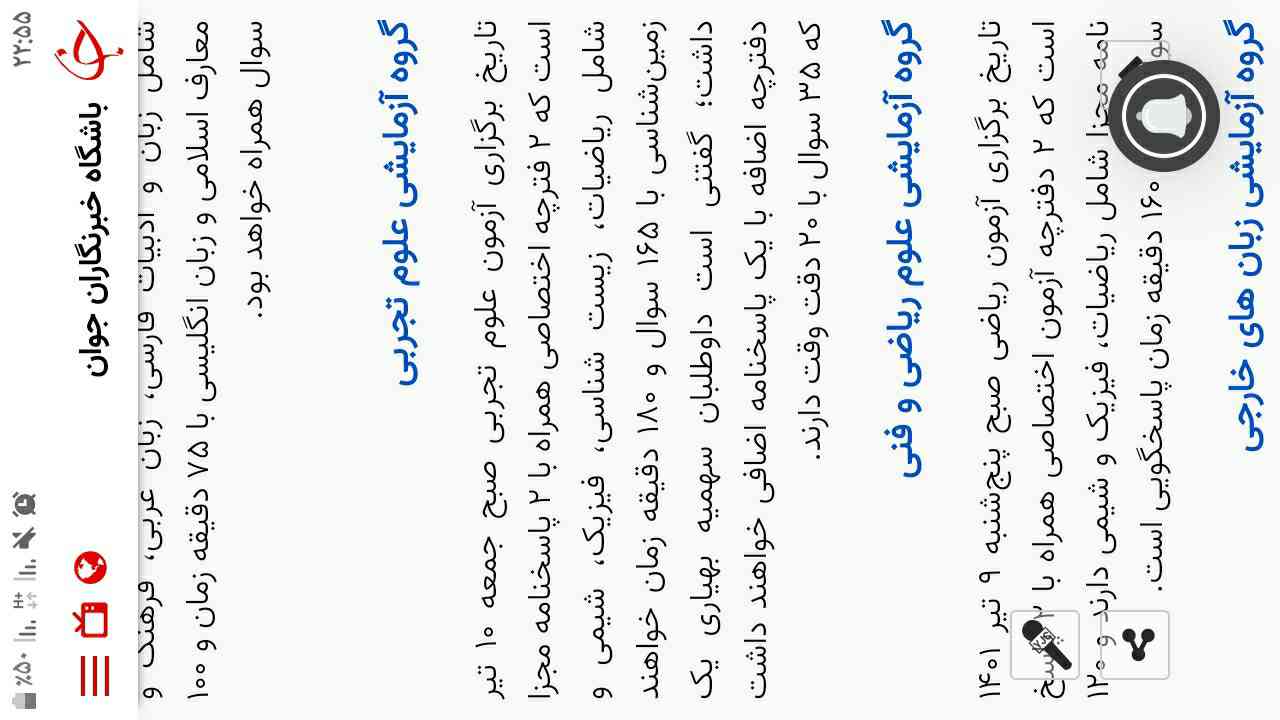 ۲۲:۵۵
H+
٪۵۰
باشگاه خبرنگاران جوان
شامل زبان و ادبیات فارسی، زبان عربی، فرهنگ و
معارف اسلامی و زبان انگلیسی با ۷۵ دقیقه زمان و ۱۰۰
سوال همراه خواهد بود.
گروه آزمایشی علوم تجربی
تاریخ برگزاری آزمون علوم تجربی صبح جمعه ۱۰ تیر
است که ۲ فترچه اختصاصی همراه با ۲ پاسخنامه مجزا
شامل ریاضیات، زیست شناسی، فیزیک، شیمی و
زمین‌شناسی با ۱۶۵ سوال و ۱۸۰ دقیقه زمان خواهند
داشت؛ گفتنی است داوطلبان سهمیه بهیاری یک
دفترچه اضافه با یک پاسخنامه اضافی خواهند داشت
که ۳۵ سوال با ۲۰ دقت وقت دارند.
گروه آزمایشی علوم ریاضی و فنی
تاریخ برگزاری آزمون ریاضی صبح پنج‌شنبه ۹ تیر ۱۴۰۱
است که ۲ دفترچه آزمون اختصاصی همراه با ۲
نامه مجزا شامل ریاضیات، فیزیک و شیمی دارند و ۱۲۰
۱۶۰ دقیقه زمان پاسخگویی است.
گروه آزمایشی زبان های خارجی
YJC